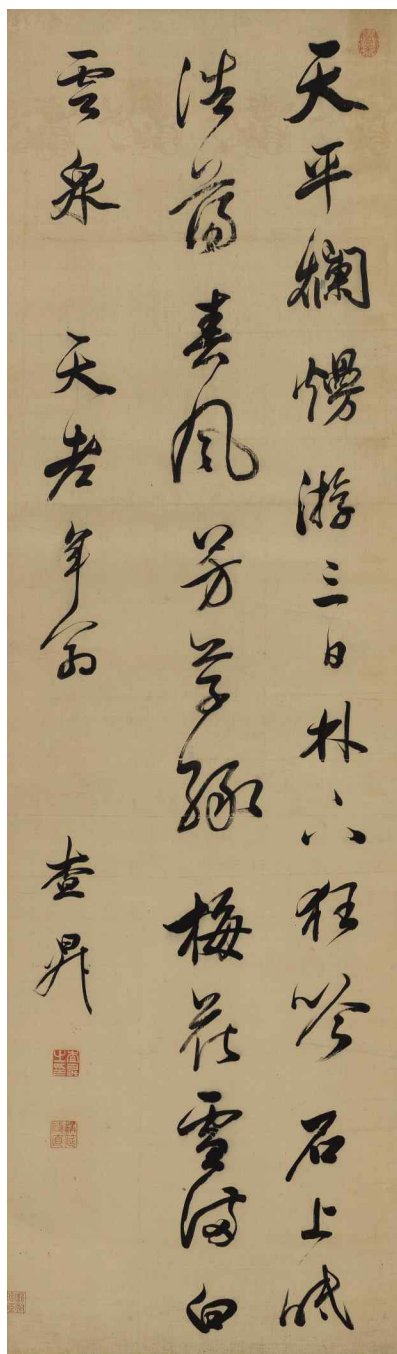 天平爛熳游三日林下狂吟石上眠
澹蕩春風芳草綠梅花雪滿白
雲泉 天老年翁 查昇